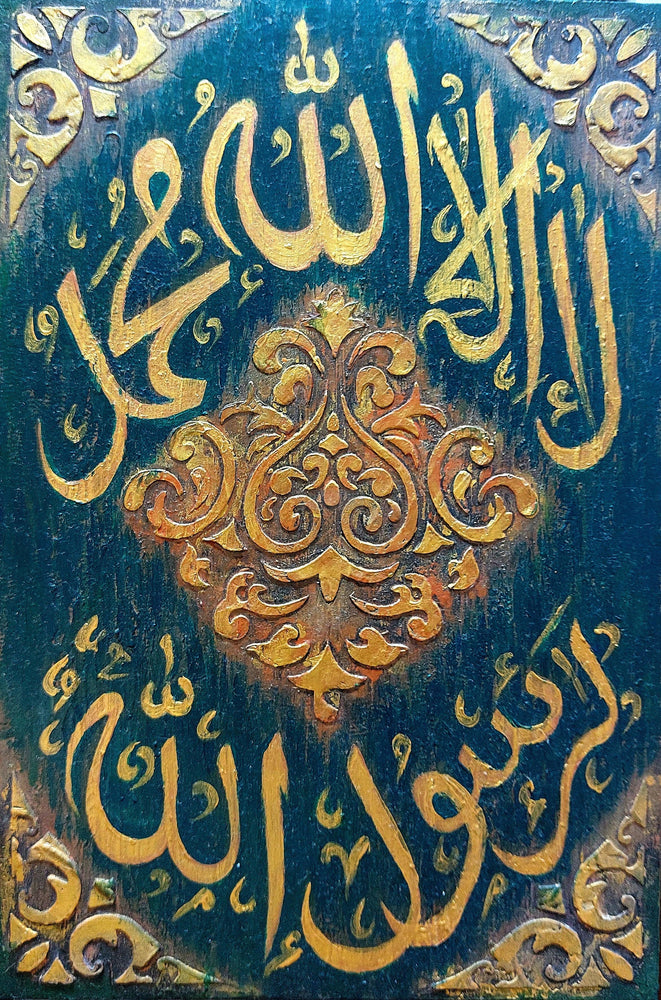 لا إله الا الله محمد
رسول الله